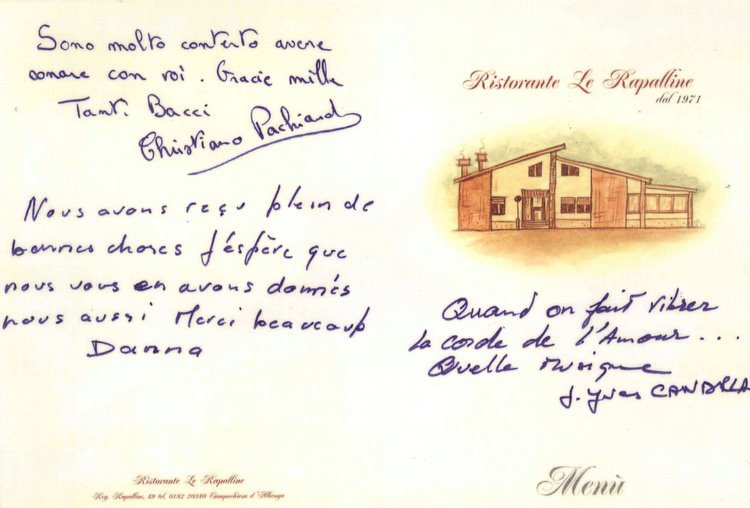 Sono molto contento avere
sonare con voi. Gracie mille
Tanti Bacci
Christiano Pachiaud
Nous avons reçu plein de
bonnes choses j'éspère que
nous vous en avons donnés
nous aussi Merci beaucoup
Danna
Ristorante Le Rapalline
Reg. Rapalline, 49 tel. 0182 20340 Campochiesa d'Albenga
Ristorante Le Rapalline
dal 1971
Quand on fait vibrer
la corde de l'Amour...
Quelle Musique
J. Yves CANDELA
Menù